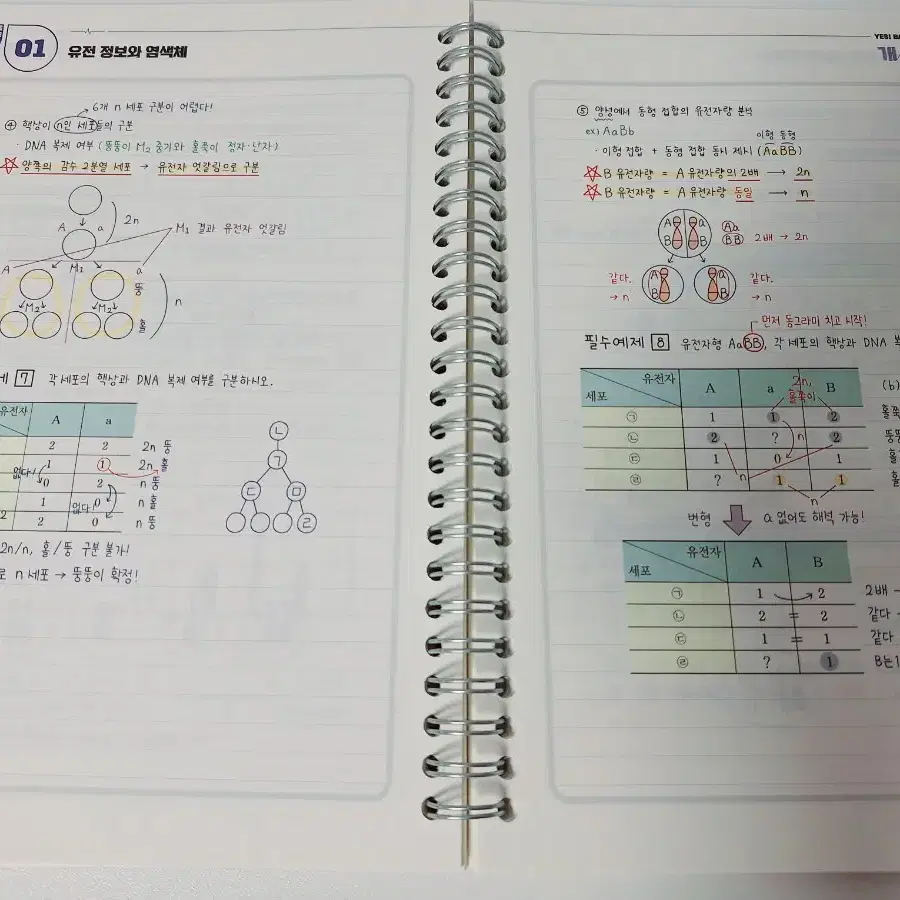 01 유전 정보와 염색체
6개 n 세포 구분이 어렵다!
④ 핵상이 n인 세포들의 구분
· DNA 복제 여부 (뚱뚱이 M₂ 중기와 홀쭉이 정자·난자)
☆ 양쪽의 감수 2분열 세포 → 유전자 엇갈림으로 구분
2n
A a
M₁ 결과 유전자 엇갈림
M₁
A a
뚱
M₂ M₂
n
홀
7 각 세포의 핵상과 DNA 복제 여부를 구분하시오.
유전자 A a
2 2 2n 뚱
1 1 2n 홀
없다!
0 2 n 뚱
1 0 n 홀
없다
2 0 n 뚱
ㄴ
ㄱ
ㄷ ㅁ
ㄹ
2n/n, 홀/뚱 구분 불가!
로 n 세포 → 뚱뚱이 확정!
YES! BA
⑤ 양성에서 동형 접합의 유전자량 분석
ex) AaBb
이형 동형
· 이형 접합 + 동형 접합 동시 제시 (AaBB)
☆ B 유전자량 = A 유전자량의 2배 → 2n
☆ B 유전자량 = A 유전자량 동일 → n
A a
B B
Aa
BB 2배 → 2n
같다. → n
A
B
a
B
같다. → n
먼저 동그라미 치고 시작!
필수예제 8 유전자형 AaBB, 각 세포의 핵상과 DNA 복
세포 유전자 A a B
2n, 홀쭉이
(b)
㉠ 1 1 2 홀쭉
㉡ 2 ? 2 뚱뚱
n
㉢ 1 0 1 홀
㉣ ? 1 1 홀
n
n
변형 a 없어도 해석 가능!
세포 유전자 A B
㉠ 1 2 2배
㉡ 2 = 2 같다
㉢ 1 = 1 같다
㉣ ? 1 B는 1